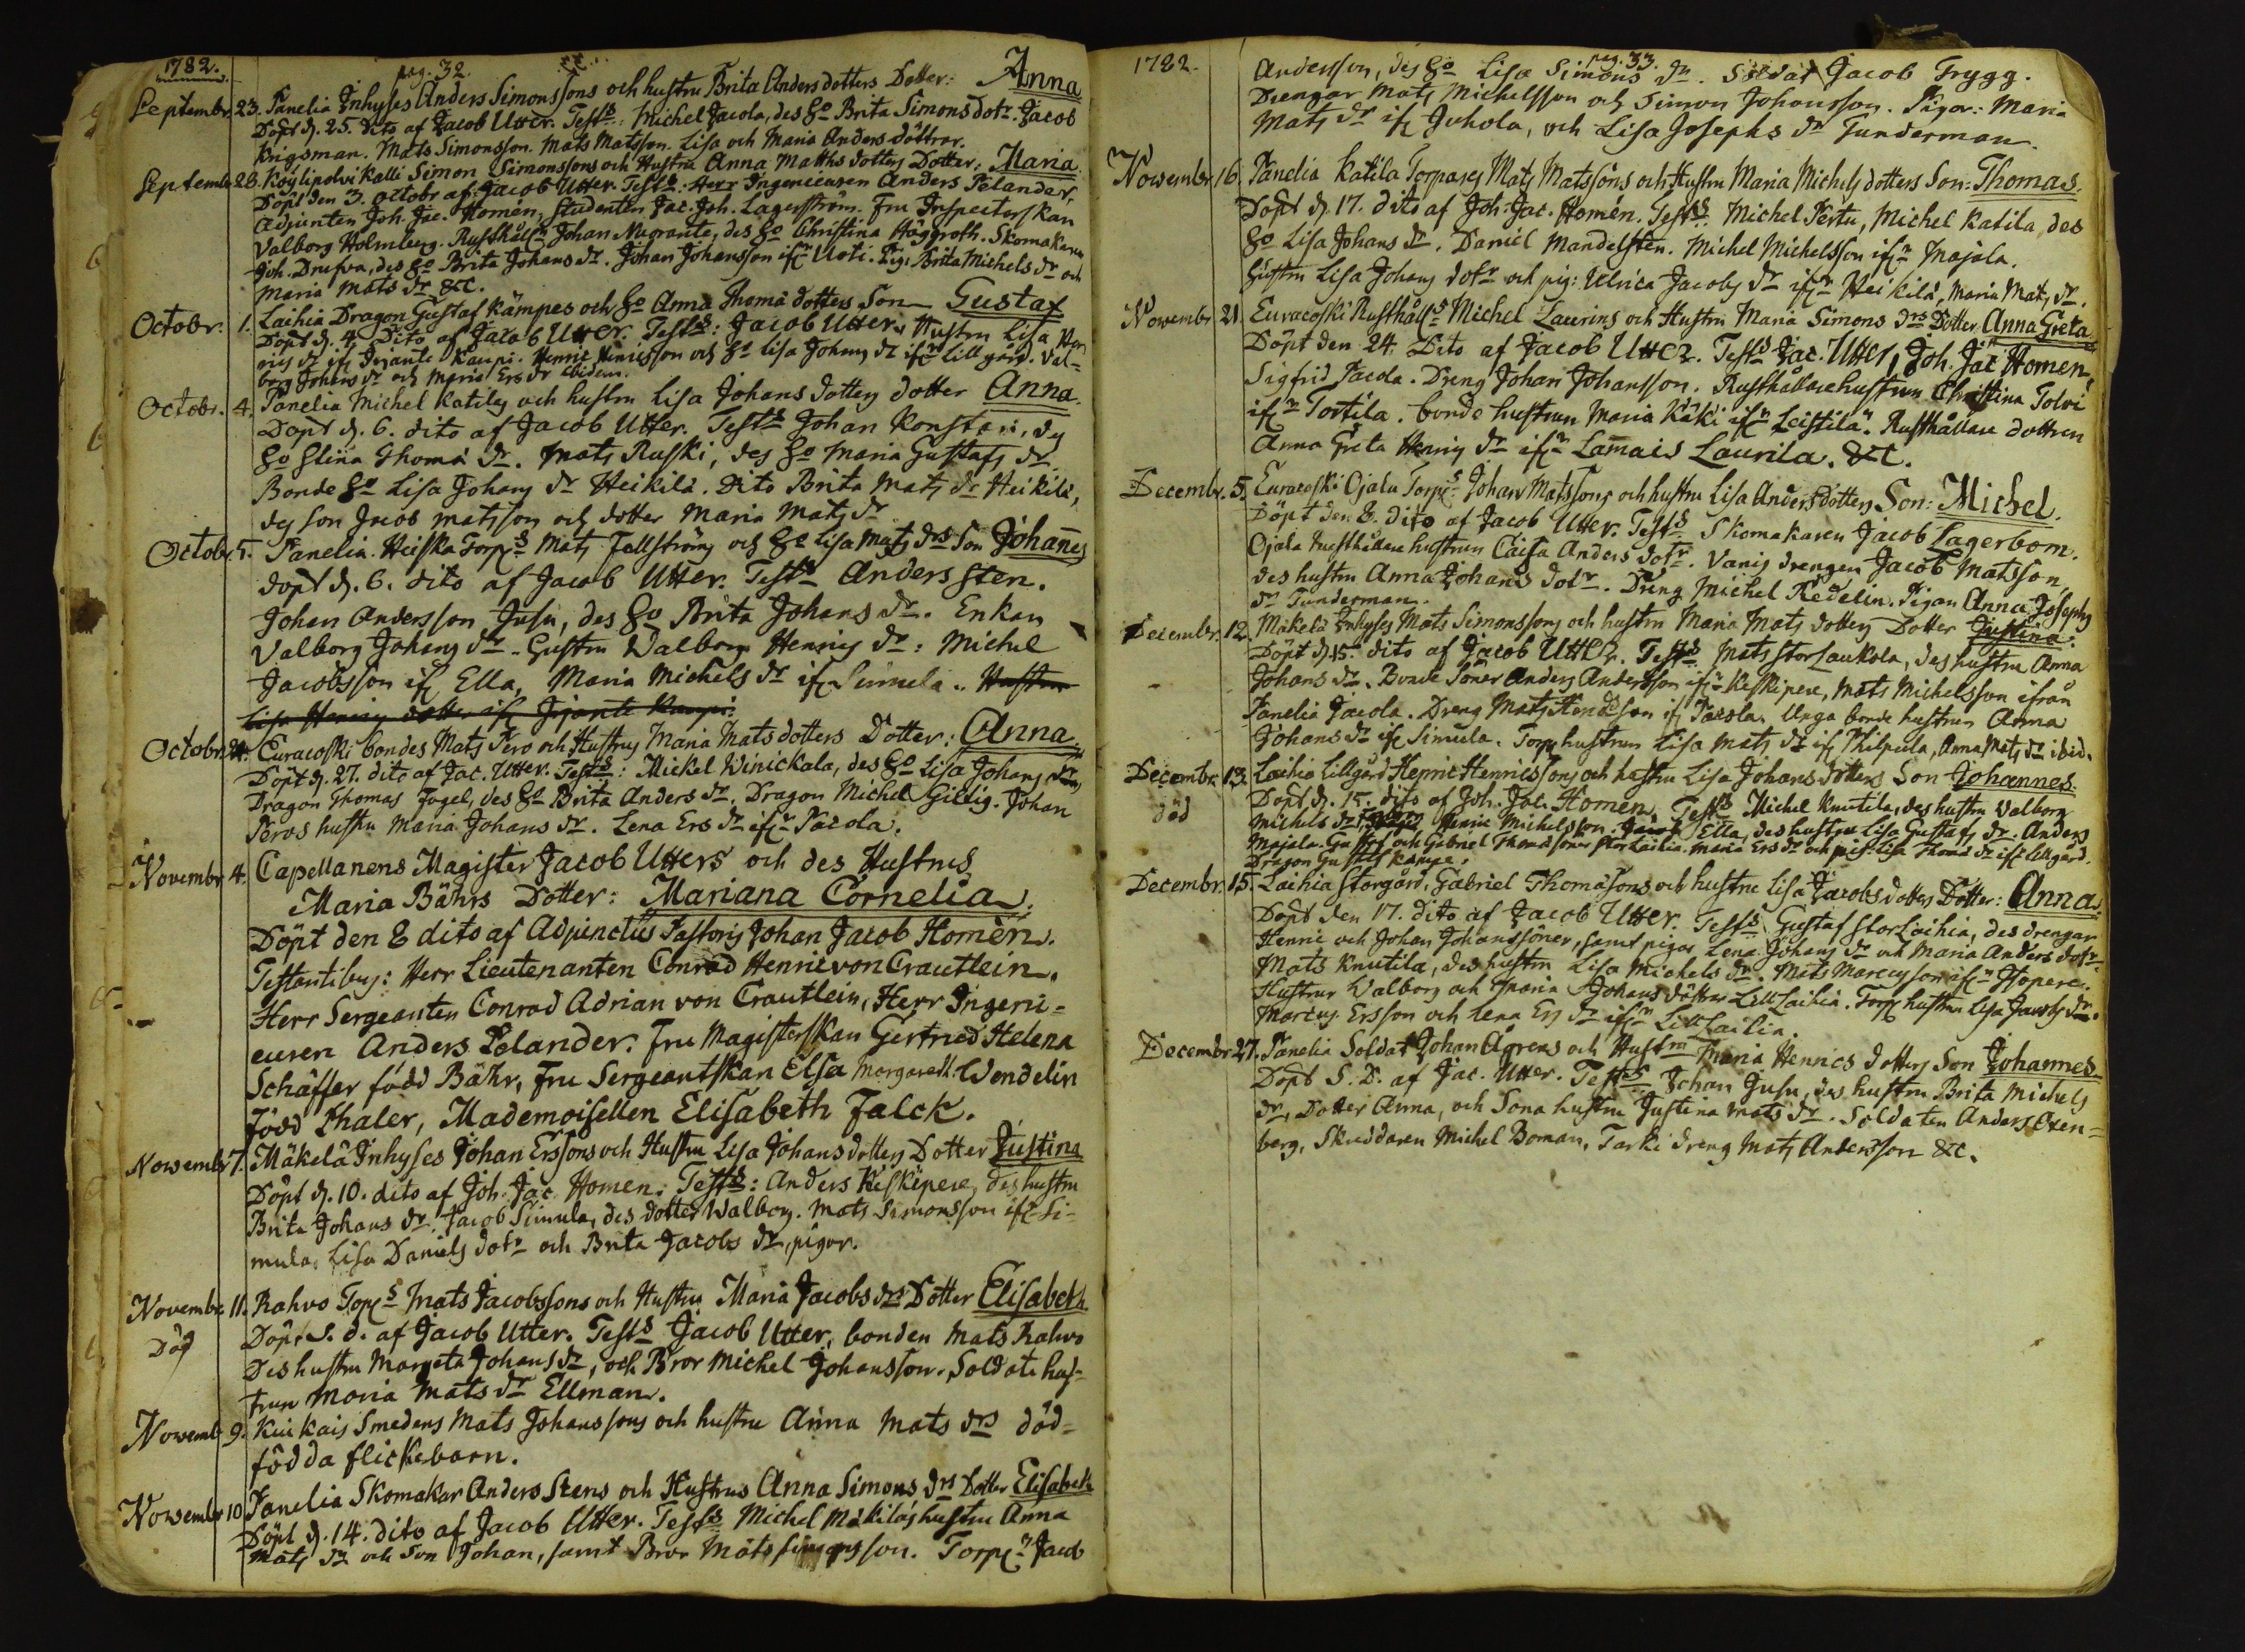 1782.
pag. 32
Septembr. 23. Panelia Inhyses Anders Simonssons och hustru Brita Andersdotters Dotter: Anna
Döpt d. 25. dito af Jacob Utter. Test:s: Michel Jacola, des ho Brita Simons dotr. Jacob
Krigsman. Mats Simonsson. Mats Matsson. Lisa och Maria Anders döttrar.
Septembr. 28. Köylipolvi Kalli Simon Simonssons och Hustru Anna Matths dotters Dotter. Maria
Döpt den 3. octobr af Jacob Utter. Test:s: Herr Ingenieuren Anders Pelander,
Adjuncten Joh. Jac. Homén, Studenten Jac. Joh. Lagerström. Fru Inspectorskan
Valborg Holmberg. Rusthåln Johan Nuorante, des ho Christina Häggroth. Skomakaren
Joh. Drufva, des ho Brita Johans dr. Johan Johansson ifr Uoti. Pig: Brita Michels dr och
Maria Mats dr &c.
Octobr. 1. Laihia Dragon Gustaf Kämpes och ho Anna Thomä dotters Son Gustaf
Döpt d. 4. Dito af Jacob Utter. Test:s: Jacob Utter. Hustru Lisa Hen
rics dr ifr Jyante Kaupi. Henric Henricsson och ho Lisa Johans dr ifrn Lillgård. Val=
borg Johans dr och Maria Ers dr ibidem.
Octobr. 4. Panelia Michel Katilas och hustru Lisa Johans dotters dotter Anna.
Döpt d. 6. dito af Jacob Utter. Test:s Johan Konstari, des
ho Elina Thomä dr. Mats Ruski, des ho Maria Gustafs dr
Bonde ho Lisa Johans dr Heikilä. Dito Brita Mats dr Heikilä,
des son Jacob Matsson och dotter Maria Mats dr
Octobr. 5. Panelia Heiska Torp:s Mats Fellströms och ho Lisa Mats drs Son Johanes
döpt d. 6. dito af Jacob Utter. Test:s Anders Sten.
Johan Andersson Jusu, des ho Brita Johans dr. Enkan
Valborg Johans dr. Hustru Walborg Henrics dr: Michel
Jacobsson ifr Ella, Maria Michels dr ifr Simula. Hustru
Lisa Henrics dotter ifr Jyjante Kaupi.
Octobr. 24. Euracoski bondes Mats Pero och Hustrus Maria Matsdotters Dotter: Anna
Döpt d. 27. dito af Jac. Utter. Test:s: Mickel Winickala, des ho Lisa Johans dr,
Dragon Thomas Fogel, des ho Brita Anders dr. Dragon Michel Gillig. Johan
Peros hustru Maria Johans dr. Lena Ers dr ifrn Pacola.
Novembr 4. Capellanens Magister Jacob Utters och des Hustrus
Maria Bährs Dotter: Mariana Cornelia.
Döpt den 8 dito af Adjunctus Pastoris Johan Jacob Homén.
Testantibus: Herr Lieutenanten Conrad Henric von Crautlein.
Herr Sergeanten Conrad Adrian von Crautlein, Herr Ingeni=
euren Anders Pelander. Fru Magisterskan Gertrud Helena
Schäffer född Bähr, Fru Sergeantskan Elsa Margareth. Wendelin
född Thaler, Mademoisellen Elisabeth Falck.
Novembr 7. Mäkelä Inhyses Johan Erssons och Hustru Lisa Johansdotters Dotter Justina
Döpt d. 10. dito af Joh. Jac. Homen. Test:s: Anders Keskipere, des hustru
Brita Johans dr. Jacob Simula, des dotter Walborg. Mats Simonsson ifr Si=
mula. Lisa Daniels dotr och Brita Jacobs dr, pigor.
Novembr 11. Rahvo Torp:s Mats Jacobssons och Hustru Maria Jacobs drs Dotter Elisabeth
Död Döpt S. d. af Jacob Utter. Test:s Jacob Utter, bonden Mats Rahvo
Des hustru Margeta Johans dr, och Bror Michel Johansson. Soldate hus=
trun Maria Mats dr Ellman.
Novembr 9. Kiukais Smedens Mats Johanssons och hustru Anna Mats drs död=
födda flickebarn.
Novembr 10. Panelia Skomakar Anders Stens och Hustrus Anna Simons drs Dotter Elisabeth
Döpt d. 14. dito af Jacob Utter. Test:s Michel Mäkiläs hustru Anna
Mats dr och Son Johan, samt Bror Mats Simonsson. Torpn Jacob
1782.
pag. 33.
Andersson, des ho Lisa Simons dr. Soldat Jacob Trygg.
Drengar Mats Michelsson och Simon Johansson. Pigor: Maria
Mats dr ifr Juhola, och Lisa Josephs dr Tunderman.
Novembr. 16. Panelia Katila Torpares Mats Matssons och Hustru Maria Michels dotters Son: Thomas.
Döpt d. 17. dito af Joh. Jac. Homén. Test:s Michel Pertu, Michel Katila, des
ho Lisa Johans dr. Daniel Mandelsten. Michel Michelsson ifrn Majala.
Hustru Lisa Johans dotr och pig: Ulrica Jacobs dr ifrn Heikilä, Maria Mats dr.
Novembr 21. Euracoski Rusthåls Michel Laurins och Hustru Maria Simons drs Dotter Anna Greta
Döpt den 24. Dito af Jacob Utter. Test:s Jac. Utter, Joh. Jac Homen,
Sigfrid Pacola. Dreng Johan Johansson. Rusthållarehustrun Christina Polvi
ifrn Tortila. bonde hustrun Maria Käki ifrn Leistilä. Rusthållare dottren
Anna Greta Henrics dr ifrn Lamais Laurila. &c.
Decembr. 5. Euracoski Ojala Torp:s Johan Matssons och hustru Lisa Andersdotters Son: Michel.
Döpt den 8. dito af Jacob Utter. Test:s Skomakaren Jacob Lagerbom.
Ojala Rusthållare hustrun Caisa Anders dotr. Vanis drengen Jacob Matsson,
des hustru Anna Johans dotr. Dreng Michel Redelin. Pigan Anna Josephs
dr Tunderman.
Decembr. 12. Mäkelä Inhyses Mats Simonssons och hustru Maria Mats dotters Dotter Justina.
Döpt d. 15. dito af Jacob Utter. Test:s Mats Storlaukola, des hustru Anna
Johans dr. Bonde Söner Anders Andersson ifrn Keskipere, Mats Michelsson ifrån
Panelia Jacola. Dreng Mats Hendsson ifr Pacola. Unga bonde hustrun Anna
Johans dr ifr Simula. Torp hustrun Lisa Mats dr ifr Kilpula, Anna Mats dr ibid.
Decembr. 13. Laihia Lillgård Henric Henricssons och hustru Lisa Johansdotters Son Johannes.
död Döpt d. 15. dito af Joh. Jac. Homen. Test:s Michel Knutila, des hustru Valborg
Michels dr, Henric Michelsson. Jacob Ella, des hustru Lisa Gustafs dr. Anders
Majala. Gustaf och Gabriel Thomä söner Storlaihia. Maria Ers dr och pig: Lisa Thomä dr ifr Lillgård.
Dragon Gustaf Kämpe.
Decembr. 15. Laihia Storgård, Gabriel Thomäsons och hustru Lisa Jacobsdotters Dotter: Anna.
Döpt den 17. dito af Jacob Utter. Test:s Gustaf Storlaihia, des drengar
Henric och Johan Johanssöner, samt pigor Lena Johans dr och Maria Anders dotr.
Mats Knutila, des hustru Lisa Michels dr. Mats Marcusson ifrn Isopere.
Hustrur Walborg och Maria Johans döttrar Lill Laihia. Torp hustrun Lisa Jacobs dr.
Marcus Ersson och Lena Ers dr ifrn Lill Laihia.
Decembr 27. Panelia Soldat Johan Ågrens och Hustru Maria Henrics dotters Son Johannes
Döpt S. D. af Jac. Utter. Test:s Johan Jusu, des hustru Brita Michels
dr, Dotter Anna, och Sona hustru Justina Mats dr. Soldaten Anders Oxen=
berg, Skreddaren Michel Boman, Tarki dreng Mats Andersson &c.